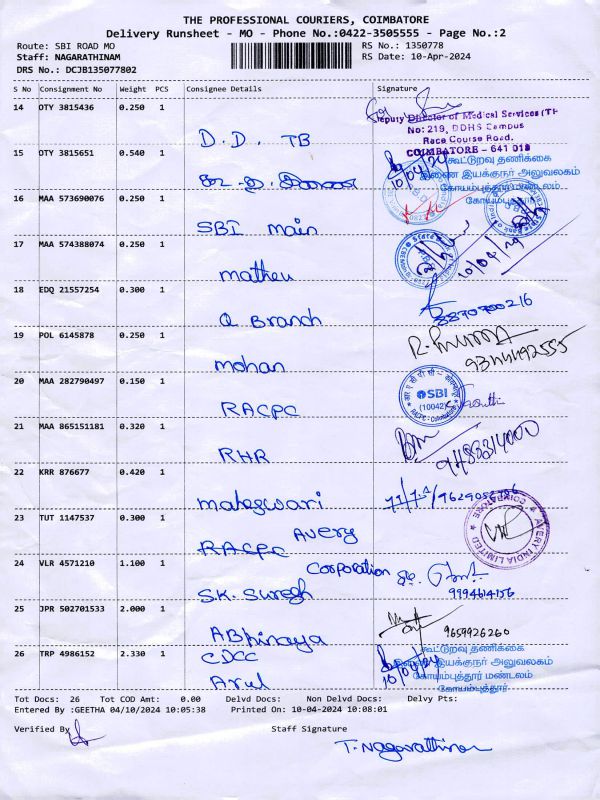 THE PROFESSIONAL COURIERS, COIMBATORE
Delivery Runsheet - MO - Phone No.:0422-3505555 - Page No.:2
Route: SBI ROAD MO
RS No.: 1350778
Staff: NAGARATHINAM
RS Date: 10-Apr-2024
DRS No.: DCJB135077802
S No Consignment No Weight PCS Consignee Details Signature
14 OTY 3815436 0.250 1
Deputy Director of Medical Services (T
No: 219, DDHS Campus
Race Course Road,
COIMBATORE - 641 018
D.D. TB
15 OTY 3815651 0.540 1
10/04/24
கூட்டுறவு தணிக்கை
இணை இயக்குநர் அலுவலகம்
கோயம்புத்தூர் மண்டலம்
கோயம்புத்தூர்
16 MAA 573690076 0.250 1
SBI main
17 MAA 574388074 0.250 1
State Bank of
10/04/24
matheu
18 EDQ 21557254 0.300 1
8870700216
Q Branch
19 POL 6145878 0.250 1
R.
9344492555
mohan
20 MAA 282790497 0.150 1
SBI
(10042)
RACPC
21 MAA 865151181 0.320 1
9488314000
RHR
22 KRR 876677 0.420 1
maheswari
23 TUT 1147537 0.300 1
AVERY INDIA LIMITED
COIMBATORE
RACPC Avery
24 VLR 4571210 1.100 1
Corporation
S.K. Suregh
9994614156
25 JPR 502701533 2.000 1
9659926260
ABhinaya
26 TRP 4986152 2.330 1
CDCC
Arul
10/04/24
கூட்டுறவு தணிக்கை
இணை இயக்குநர் அலுவலகம்
கோயம்புத்தூர் மண்டலம்
கோயம்புத்தூர்
Tot Docs: 26 Tot COD Amt: 0.00 Delvd Docs: Non Delvd Docs: Delvy Pts:
Entered By :GEETHA 04/10/2024 10:05:38 Printed On: 10-04-2024 10:08:01
Verified By
Staff Signature
T. Nagarathinam